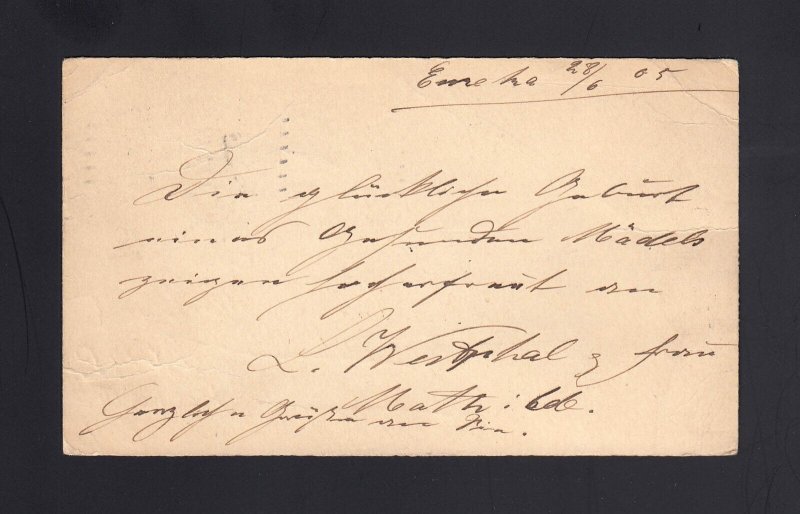 Eureka 28/6 05
Die glückliche Geburt
eines Gesunden Mädels
zeigen hocherfreut an
L. Westphal & Frau
Mathilde.
Herzliche Grüße an Sie.